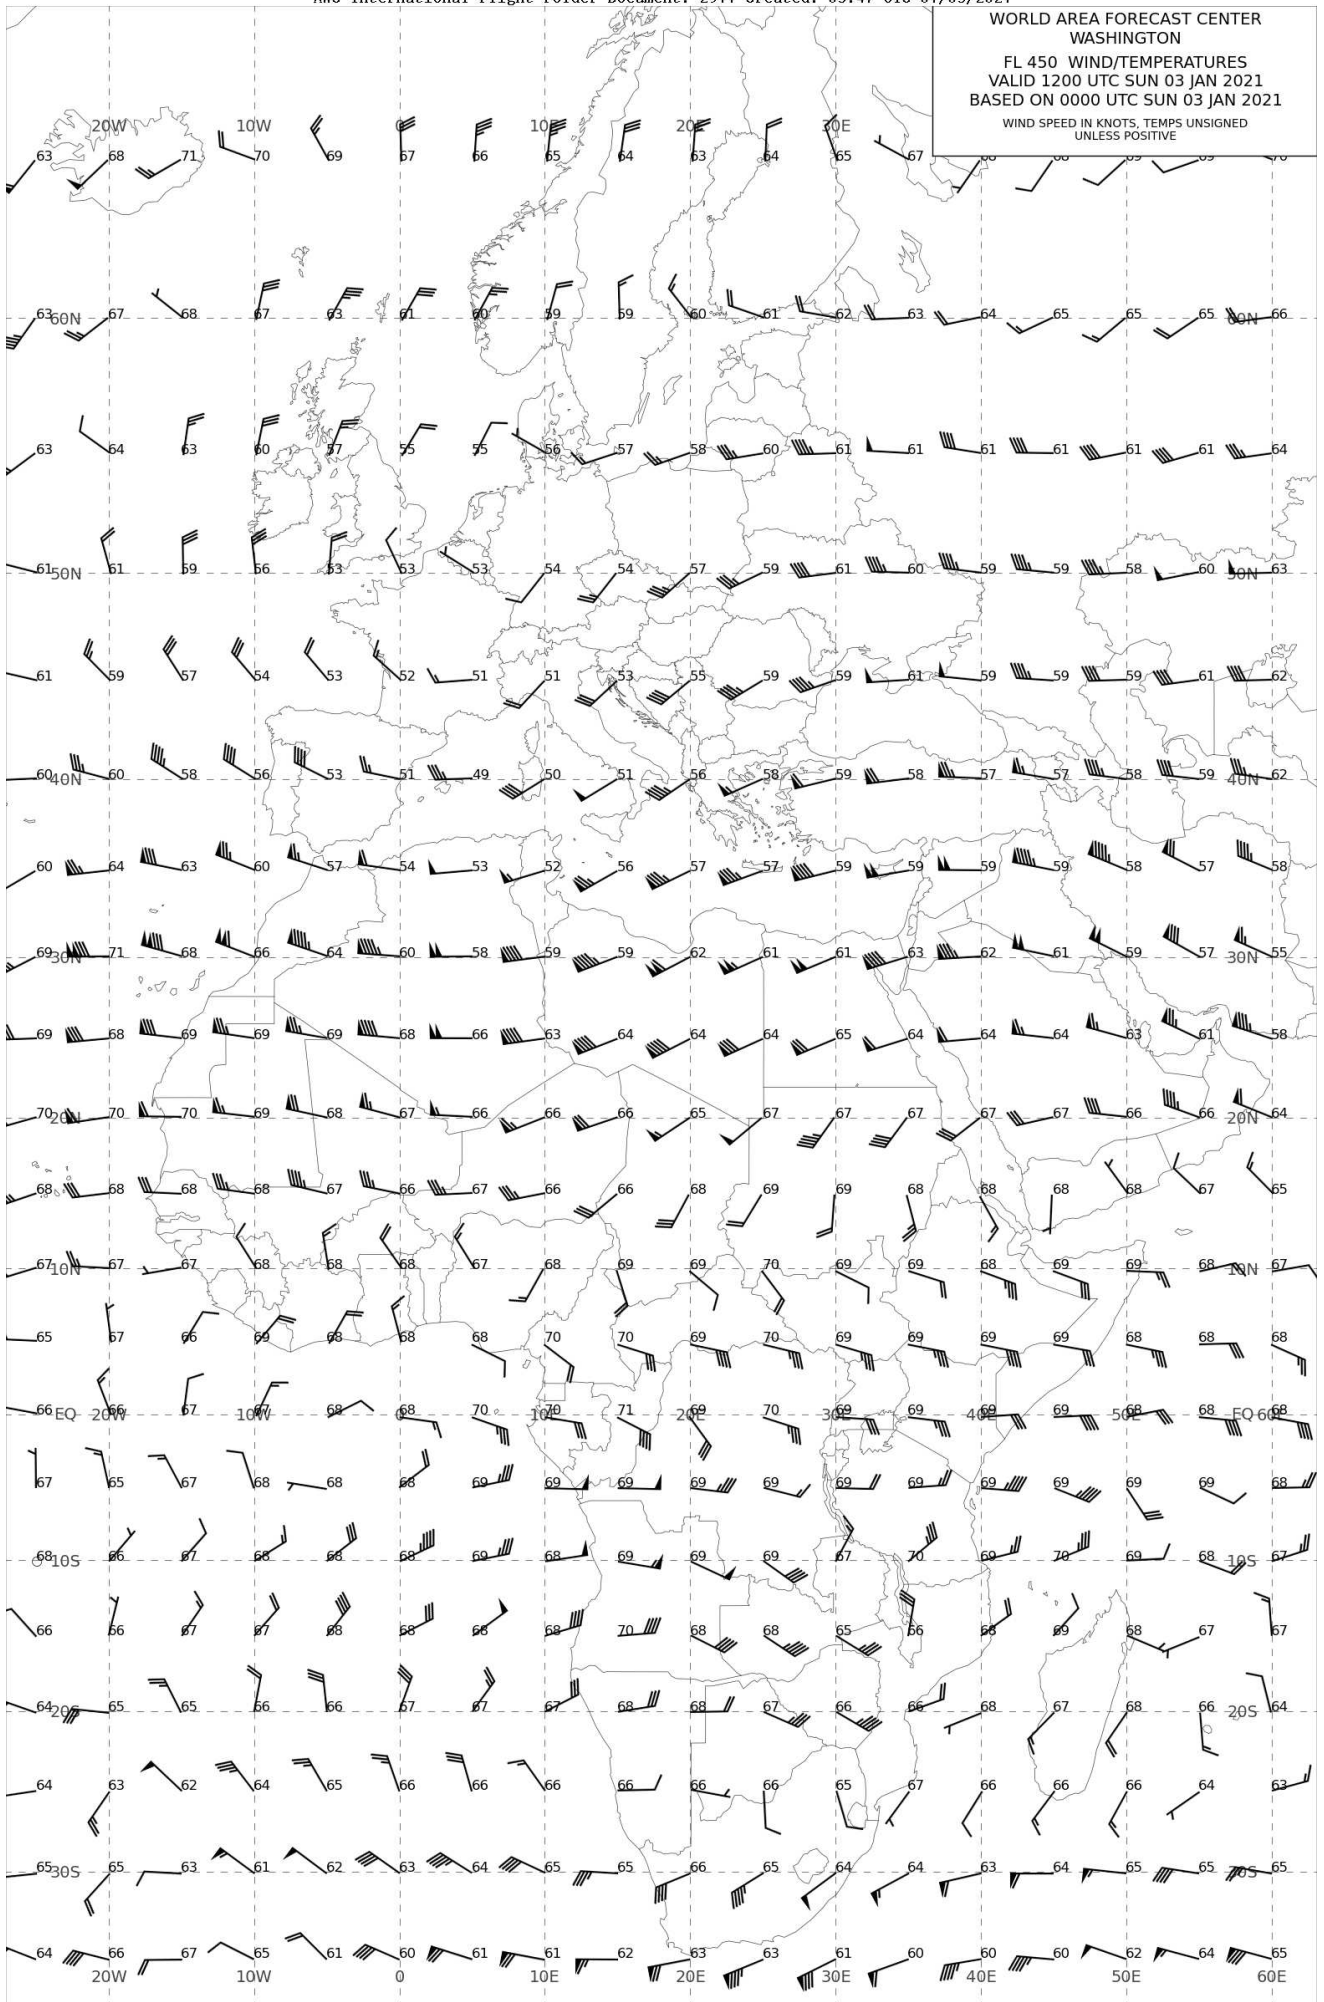 International Flight Folder Document:
WORLD AREA FORECAST CENTER
WASHINGTON
FL 450 WIND/TEMPERATURES
VALID 1200 UTC SUN 03 JAN 2021
BASED ON 0000 UTC SUN 03 JAN 2021
WIND SPEED IN KNOTS, TEMPS UNSIGNED
UNLESS POSITIVE
20W 10W 0 10E 20E 30E
63 68 71 70 69 67 66 65 64 63 64 65 67 68 68 69 69 70
63 60N 67 68 67 63 61 60 59 59 60 61 62 63 64 65 65 65 60N 66
63 64 63 60 57 55 55 56 57 58 60 61 61 61 61 61 61 64
61 50N 61 59 56 53 53 53 54 54 57 59 61 60 59 59 58 60 50N 63
61 59 57 54 53 52 51 51 53 55 59 59 61 59 59 59 61 62
60 40N 60 58 56 53 51 49 50 51 56 58 59 58 57 57 58 59 40N 62
60 64 63 60 57 54 53 52 56 57 57 59 59 59 59 58 57 58
69 30N 71 68 66 64 60 58 59 59 62 61 61 63 62 61 59 57 30N 55
69 68 69 69 69 68 66 63 64 64 64 65 64 64 64 63 61 58
70 20N 70 70 69 68 67 66 66 66 65 67 67 67 67 67 66 66 20N 64
68 68 68 68 67 66 67 66 66 68 69 69 68 68 68 68 67 65
67 10N 67 67 68 68 68 67 68 69 69 70 69 69 68 69 69 68 10N 67
65 67 66 69 68 68 68 70 70 69 70 69 69 69 69 68 68 68
66 EQ 66 20W 67 67 10W 68 68 0 70 70 10E 71 69 20E 70 69 30E 69 69 40E 69 68 50E 68 EQ 68 60E
67 65 67 68 68 68 69 69 69 69 69 69 69 69 69 69 69 68
68 10S 66 67 68 68 68 69 68 69 69 69 67 70 69 70 69 68 10S 67
66 66 67 67 68 68 68 68 70 68 68 65 66 68 69 68 67 67
64 20S 65 65 66 66 67 67 67 68 68 67 66 66 68 67 68 66 20S 64
64 63 62 64 65 66 66 66 66 66 66 65 67 66 66 66 64 63
65 30S 65 63 61 62 63 64 65 65 66 65 64 64 63 64 65 65 30S 65
64 66 67 65 61 60 61 61 62 63 63 61 60 60 60 62 64 65
20W 10W 0 10E 20E 30E 40E 50E 60E